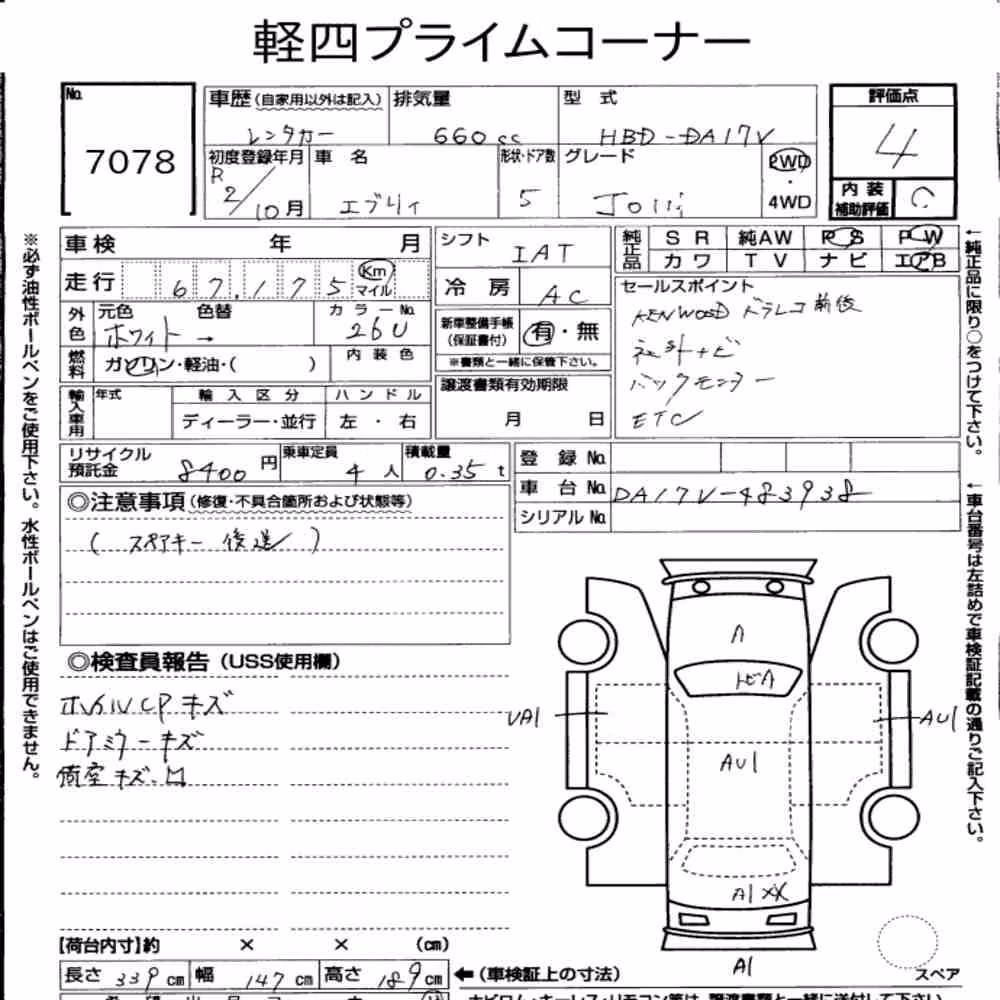 軽四プライムコーナー
No. 7078
車歴(自家用以外は記入) レンタカー
排気量 660cc
型式 HBD-DA17V
評価点 4
初度登録年月 R2/10月
車名 エブリィ
形状・ドア数 5
グレード Join
2WD・4WD
内装補助評価 C
車検 年 月
走行 67,175 Km マイル
シフト IAT
純正品 SR 純AW PS PW
カワ TV ナビ エアB
冷房 AC
外色 元色 ホワイト → 色替
カラーNo. 26U
新車整備手帳(保証書付) 有・無
※書類と一緒に保管下さい。
セールスポイント
KENWOOD ドラレコ前後
社外ナビ
バックモニター
ETC
燃料 ガソリン・軽油・( )
内装色
譲渡書類有効期限
月 日
輸入車用 年式 輸入区分 ハンドル
ディーラー・並行 左・右
リサイクル預託金 8400円
乗車定員 4人
積載量 0.35t
登録No.
車台No. DA17V-483938
シリアルNo.
◎注意事項(修復・不具合箇所および状態等)
(スペアキー後送)
◎検査員報告(USS使用欄)
ホイルCPキズ
ドアミラーキズ
荷室キズ・凹
A
トビA
UA1
AU1
AU1
A1 XX
A1
スペア
【荷台内寸】約 × × (cm)
長さ 339cm 幅 147cm 高さ 189cm
←(車検証上の寸法)
※必ず油性ボールペンをご使用下さい。水性ボールペンはご使用できません。
←純正品に限り○をつけて下さい。
←車台番号は左詰めで車検証記載の通りご記入下さい。